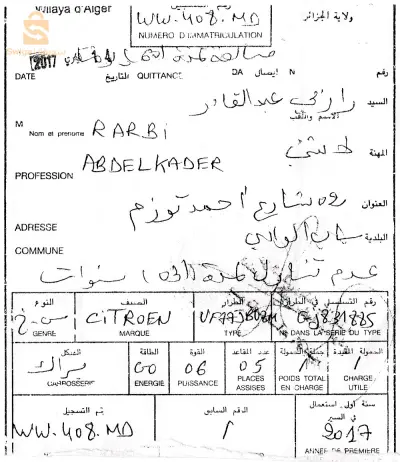 Willaya d'Alger
ولاية الجزائر
WW.408.MD
NUMERO D'IMMATRICULATION
2017
DATE التاريخ QUITTANCE إيصال DA N رقم
السيد رازبي عبد القادر
الاسم واللقب
M
Nom et prenome RARBI
المهنة
ABDELKADER
PROFESSION
العنوان شارع أحمد
ADRESSE
البلدية باب الوادي
COMMUNE
عدم تنازل لمدة (03) سنوات
النوع الصنف الطراز رقم التسلسلي في الطراز
CITROEN
GENRE MARQUE TYPE N° DANS LA SERIE DU TYPE
الشكل الطاقة القوة عدد المقاعد جملة الحمولة الحمولة المفيدة
براك GO 06 05 / /
CARROSSERIE ENERGIE PUISSANCE PLACES ASSISES POIDS TOTAL EN CHARGE CHARGE UTILE
رقم التسجيل الرقم السابق سنة أول استعمال في السير
WW.408.MD / 2017
ANNEE DE PREMIERE